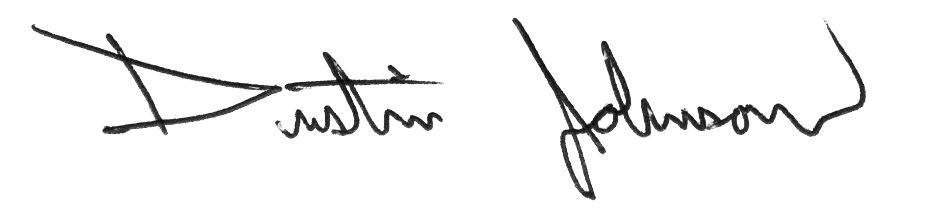 Dustin Johnson